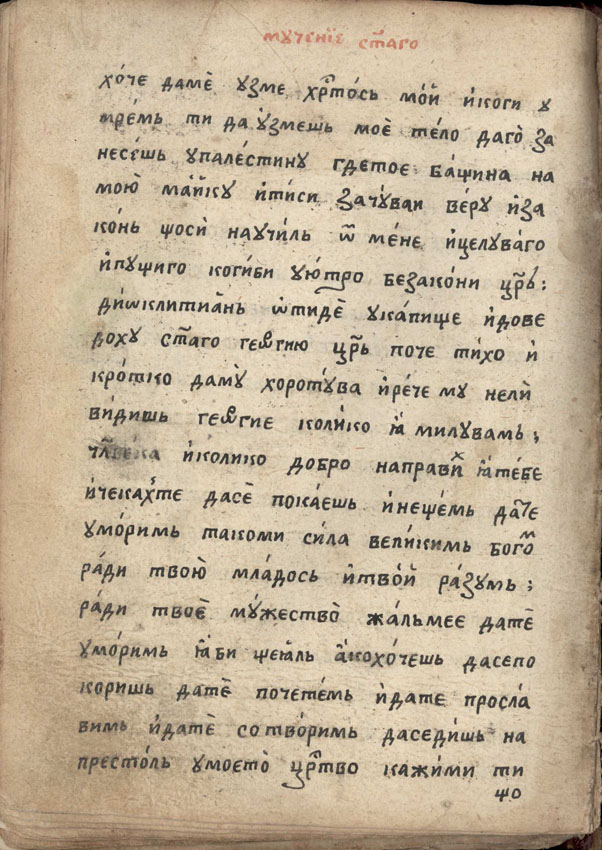 мꙋченїе ст҃аго
хо́че даме̏ ꙋзме хрⷭ҇то́сь мо́й и҆коги ꙋ
мре́мь ти да ꙋ҆змешь мое̏ те́ло даго̀ за
несе́шь ꙋпале́стинꙋ гдетое ба́щина на
мою̀ ма́йкꙋ и҆тиси зачꙋ́ваи ве́рꙋ и҆за
ко́нь щоси̏ наꙋчи́ль ѿ ме́не и҆целꙋва́го
и҆пꙋщиго коги́би ꙋю́тро безако́ни цр҃ь:
ди́ѡклитиа́нь ѡ҆тиде̏ ꙋка́пище и҆дове
доху ст҃аго геѡ́ргию цр҃ь поче ти́хо и҆
кро́тко дамꙋ̀ хоротꙋ́ва и҆ре́че мꙋ нели̏
ви́дишь гео́ргие коли́ко ꙗ҆ милꙋвамь;
чл҃ве́ка и҆колико добро напра́вихъ ꙗ҆те́бе
и҆чекахⷨте дасе̏ пока́ешь и҆неще́мь дате
ꙋмо́римь такоми си́ла вели́кимь бого́мъ
ра́ди твою̀ мла́дось и҆тво́й ра́зꙋмь;
ра́ди твое̏ мꙋ́жество̀ жа́льмее дате̏
ꙋмо́римь ꙗ҆би щеа́ль а҆кохо́чешь дасепо
коришь дате̏ почете́мь и҆дате просла́
вимь и҆дате̏ сотво́римь даседи́шь на
престо́ль ꙋмоето̀ црⷭ҇тво кажи́ми ти
що